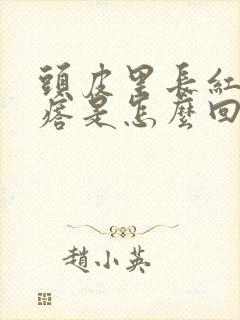 頭皮里長紅
痞是怎麼回
趙小英